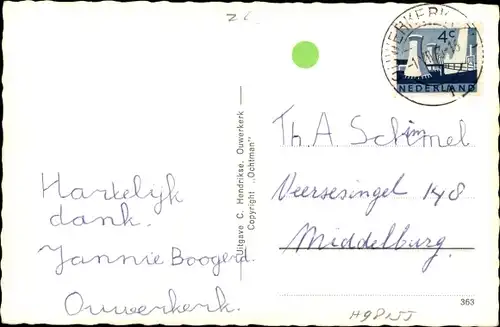 OUWERKERK
4c
NEDERLAND
Th. A Schimmel
Veersesingel 148
Middelburg.
Hartelijk
dank.
Jannie Boogerd.
Ouwerkerk.
Uitgave C. Hendrikse, Ouwerkerk —
Copyright „Ochtman”
363